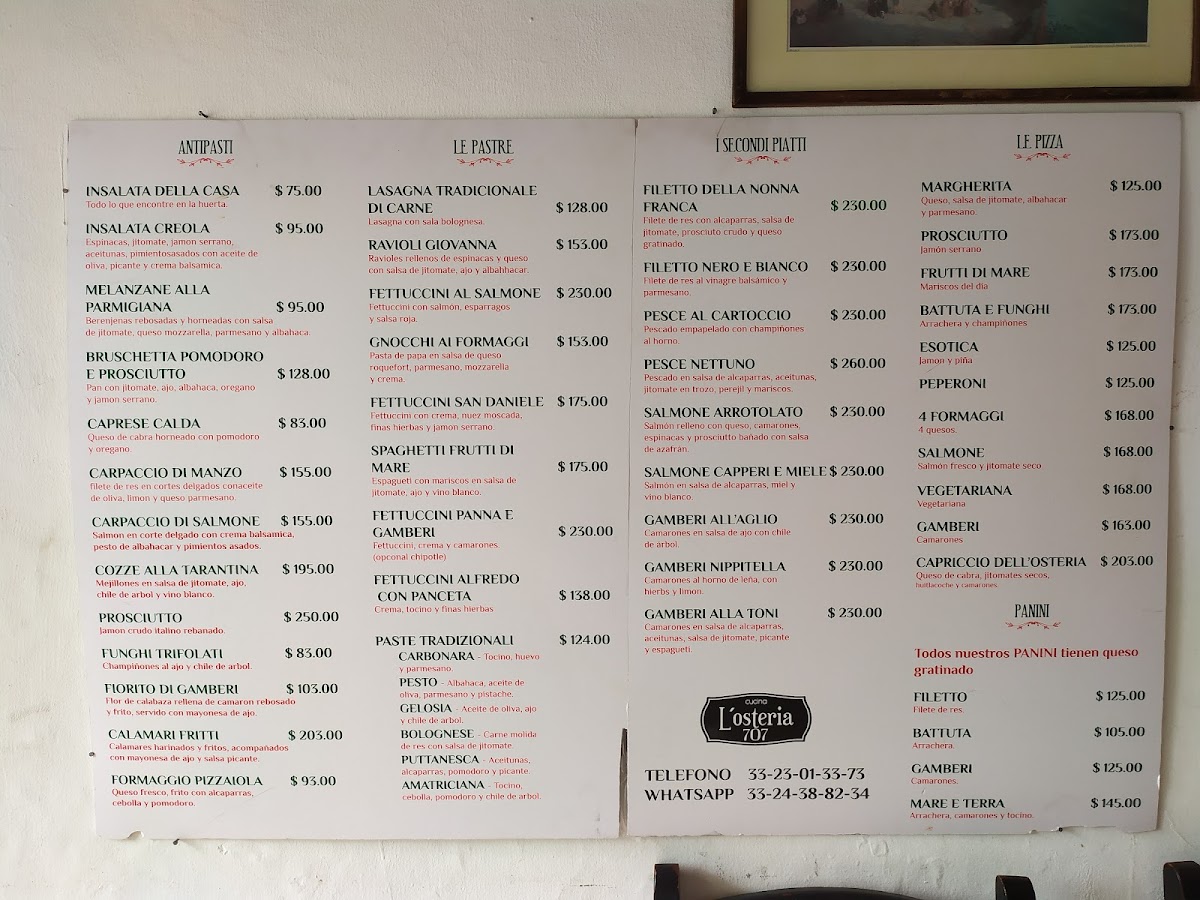 ANTIPASTI
INSALATA DELLA CASA $ 75.00
Todo lo que encontre en la huerta.
INSALATA CREOLA $ 95.00
Espinacas, jitomate, jamon serrano,
aceitunas, pimientosasados con aceite de
oliva, picante y crema balsamica.
MELANZANE ALLA
PARMIGIANA $ 95.00
Berenjenas rebosadas y horneadas con salsa
de jitomate, queso mozzarella, parmesano y albahaca.
BRUSCHETTA POMODORO
E PROSCIUTTO $ 128.00
Pan con jitomate, ajo, albahaca, oregano
y jamon serrano.
CAPRESE CALDA $ 83.00
Queso de cabra horneado con pomodoro
y oregano.
CARPACCIO DI MANZO $ 155.00
filete de res en cortes delgados conaceite
de oliva, limon y queso parmesano.
CARPACCIO DI SALMONE $ 155.00
Salmon en corte delgado con crema balsamica,
pesto de albahacar y pimientos asados.
COZZE ALLA TARANTINA $ 195.00
Mejillones en salsa de jitomate, ajo,
chile de arbol y vino blanco.
PROSCIUTTO $ 250.00
Jamon crudo italino rebanado.
FUNGHI TRIFOLATI $ 83.00
Champiñones al ajo y chile de arbol.
FIORITO DI GAMBERI $ 103.00
Flor de calabaza rellena de camaron rebosado
y frito, servido con mayonesa de ajo.
CALAMARI FRITTI $ 203.00
Calamares harinados y fritos, acompañados
con mayonesa de ajo y salsa picante.
FORMAGGIO PIZZAIOLA $ 93.00
Queso fresco, frito con alcaparras,
cebolla y pomodoro.
LE PASTRE
LASAGNA TRADICIONALE
DI CARNE $ 128.00
Lasagna con sala bolognesa.
RAVIOLI GIOVANNA $ 153.00
Ravioles rellenos de espinacas y queso
con salsa de jitomate, ajo y albahhacar.
FETTUCCINI AL SALMONE $ 230.00
Fettuccini con salmón, esparragos
y salsa roja.
GNOCCHI AI FORMAGGI $ 153.00
Pasta de papa en salsa de queso
roquefort, parmesano, mozzarella
y crema.
FETTUCCINI SAN DANIELE $ 175.00
Fettuccini con crema, nuez moscada,
finas hierbas y jamon serrano.
SPAGHETTI FRUTTI DI
MARE $ 175.00
Espagueti con mariscos en salsa de
jitomate, ajo y vino blanco.
FETTUCCINI PANNA E
GAMBERI $ 230.00
Fettuccini, crema y camarones.
(opconal chipotle)
FETTUCCINI ALFREDO
CON PANCETA $ 138.00
Crema, tocino y finas hierbas
PASTE TRADIZIONALI $ 124.00
CARBONARA - Tocino, huevo
y parmesano.
PESTO - Albahaca, aceite de
oliva, parmesano y pistache.
GELOSIA - Aceite de oliva, ajo
y chile de arbol.
BOLOGNESE - Carne molida
de res con salsa de jitomate.
PUTTANESCA - Aceitunas,
alcaparras, pomodoro y picante.
AMATRICIANA - Tocino,
cebolla, pomodoro y chile de arbol.
I SECONDI PIATTI
FILETTO DELLA NONNA
FRANCA $ 230.00
Filete de res con alcaparras, salsa de
jitomate, prosciuto crudo y queso
gratinado.
FILETTO NERO E BIANCO $ 230.00
Filete de res al vinagre balsámico y
parmesano.
PESCE AL CARTOCCIO $ 230.00
Pescado empapelado con champiñones
al horno.
PESCE NETTUNO $ 260.00
Pescado en salsa de alcaparras, aceitunas,
jitomate en trozo, perejil y mariscos.
SALMONE ARROTOLATO $ 230.00
Salmón relleno con queso, camarones,
espinacas y prosciutto bañado con salsa
de azafrán.
SALMONE CAPPERI E MIELE $ 230.00
Salmón en salsa de alcaparras, miel y
vino blanco.
GAMBERI ALL'AGLIO $ 230.00
Camarones en salsa de ajo con chile
de árbol.
GAMBERI NIPPITELLA $ 230.00
Camarones al horno de leña, con
hierbs y limon.
GAMBERI ALLA TONI $ 230.00
Camarones en salsa de alcaparras,
aceitunas, salsa de jitomate, picante
y espagueti.
cucina
L'osteria
707
TELEFONO 33-23-01-33-73
WHATSAPP 33-24-38-82-34
LE PIZZA
MARGHERITA $ 125.00
Queso, salsa de jitomate, albahacar
y parmesano.
PROSCIUTTO $ 173.00
Jamón serrano
FRUTTI DI MARE $ 173.00
Mariscos del dia
BATTUTA E FUNGHI $ 173.00
Arrachera y champiñones
ESOTICA $ 125.00
Jamon y piña
PEPERONI $ 125.00
4 FORMAGGI $ 168.00
4 quesos.
SALMONE $ 168.00
Salmón fresco y jitomate seco
VEGETARIANA $ 168.00
Vegetariana
GAMBERI $ 163.00
Camarones
CAPRICCIO DELL'OSTERIA $ 203.00
Queso de cabra, jitomates secos,
huitlacoche y camarones.
PANINI
Todos nuestros PANINI tienen queso
gratinado
FILETTO $ 125.00
Filete de res.
BATTUTA $ 105.00
Arrachera.
GAMBERI $ 125.00
Camarones.
MARE E TERRA $ 145.00
Arrachera, camarones y tocino.